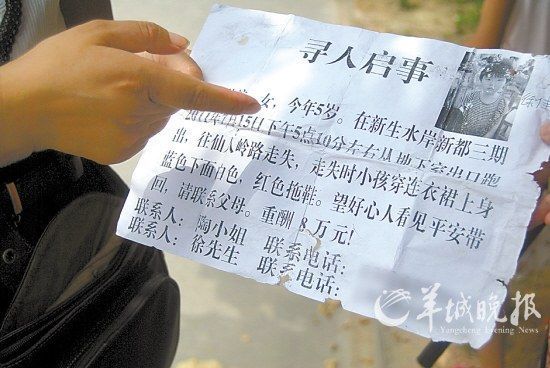 寻人启事
女，今年5岁。在新生水岸新都三期
15日下午5点10分左右从地下室出口跑
出，往仙人岭路走失，走失时小孩穿连衣裙上身
蓝色下面白色，红色拖鞋。望好心人看见平安带
回，请联系父母。重酬 8 万元!
联系人：陶小姐 联系电话：
联系人：徐先生 联系电话：
羊城晚报
Yangcheng Evening News